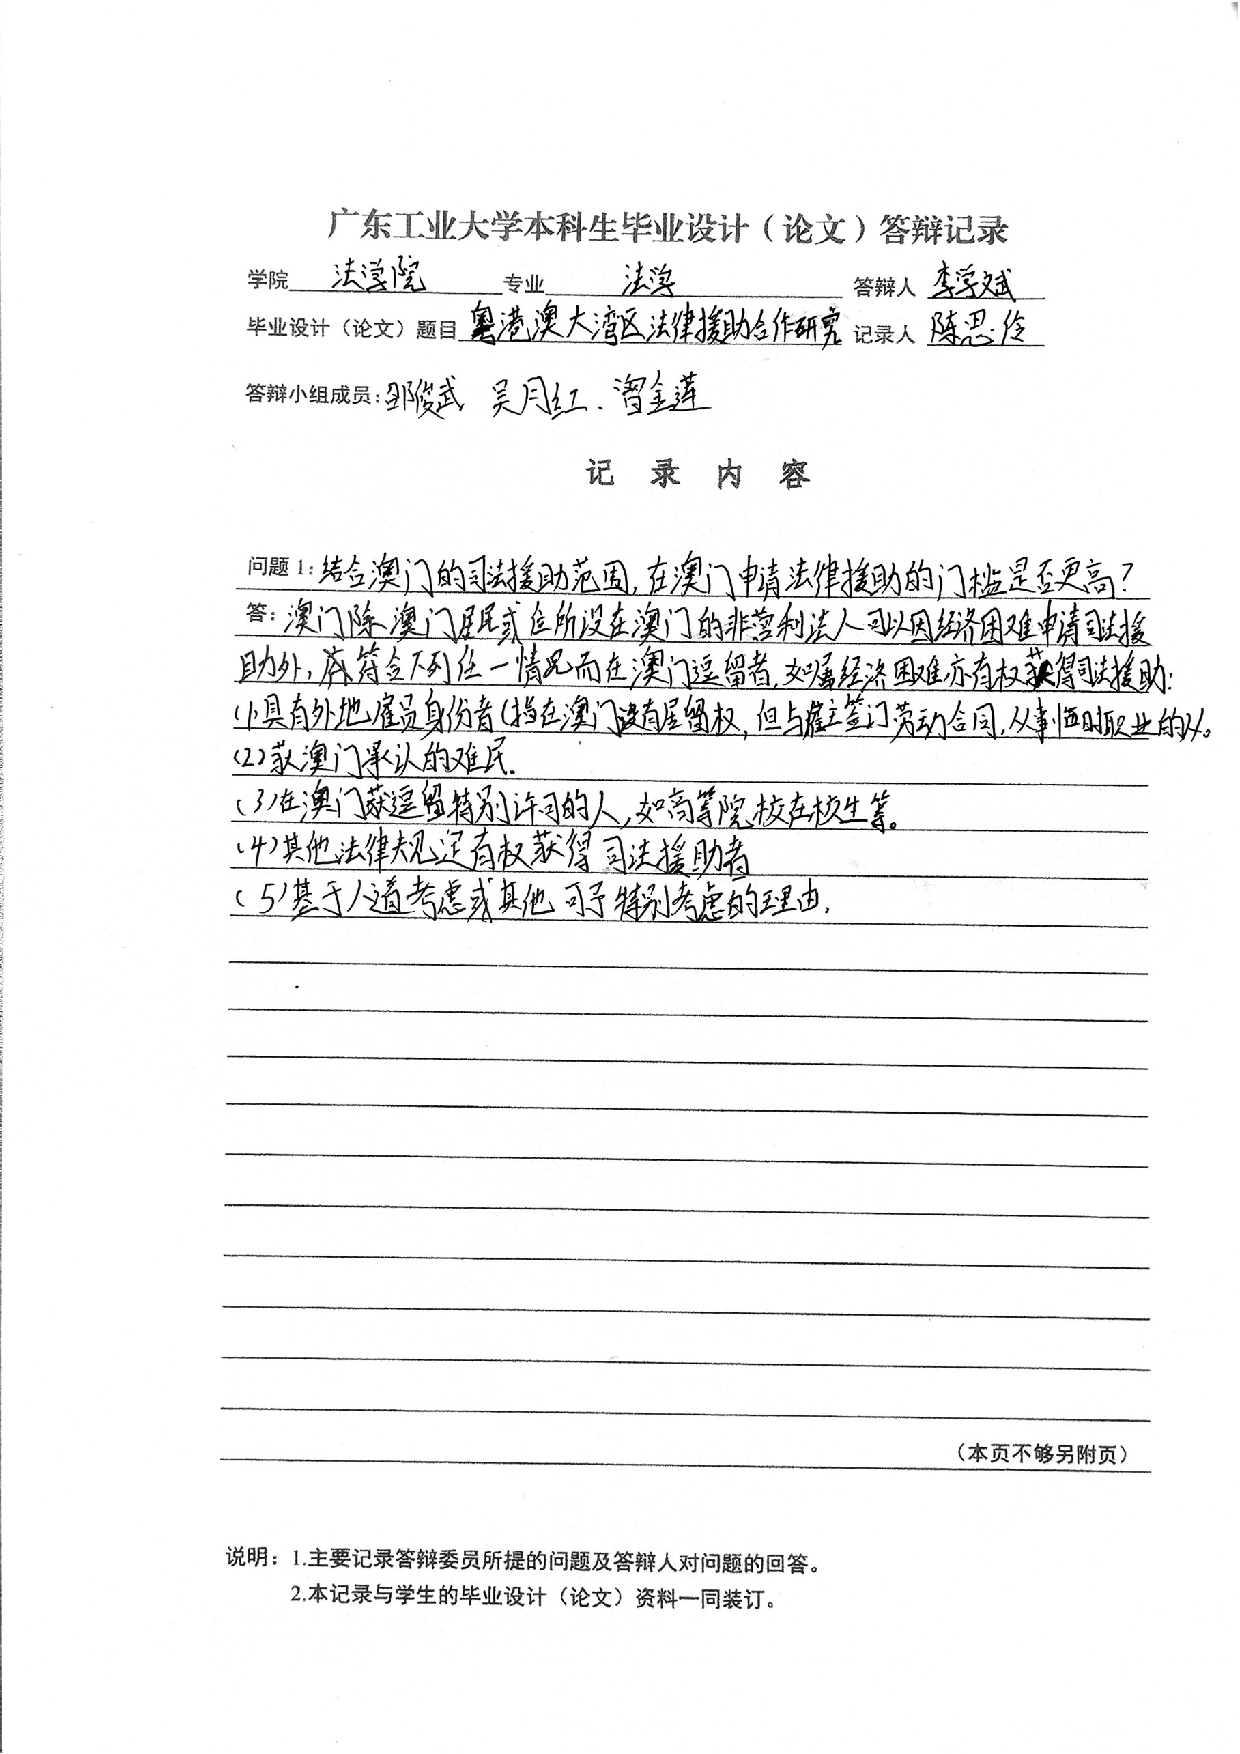 广东工业大学本科生毕业设计（论文）答辩记录
学院 法学院 专业 法学 答辩人 李学斌
毕业设计（论文）题目 粤港澳大湾区法律援助合作研究 记录人 陈思伶
答辩小组成员：邹俊武 吴月红、曾金莲
记 录 内 容
问题1：结合澳门的司法援助范围，在澳门申请法律援助的门槛是否更高？
答：澳门除澳门居民或住所设在澳门的非营利法人可以因经济困难申请司法援
助外，符合下列任一情况而在澳门逗留者，如属经济困难亦有权获得司法援助：
(1)具有外地雇员身份者(指在澳门没有居留权，但与雇主签订劳动合同，从事临时职业的人。
(2)获澳门承认的难民.
(3)在澳门获逗留特别许可的人，如高等院校在校生等。
(4)其他法律规定有权获得司法援助者
(5)基于人道考虑或其他可予特别考虑的理由.
（本页不够另附页）
说明：1.主要记录答辩委员所提的问题及答辩人对问题的回答。
2.本记录与学生的毕业设计（论文）资料一同装订。